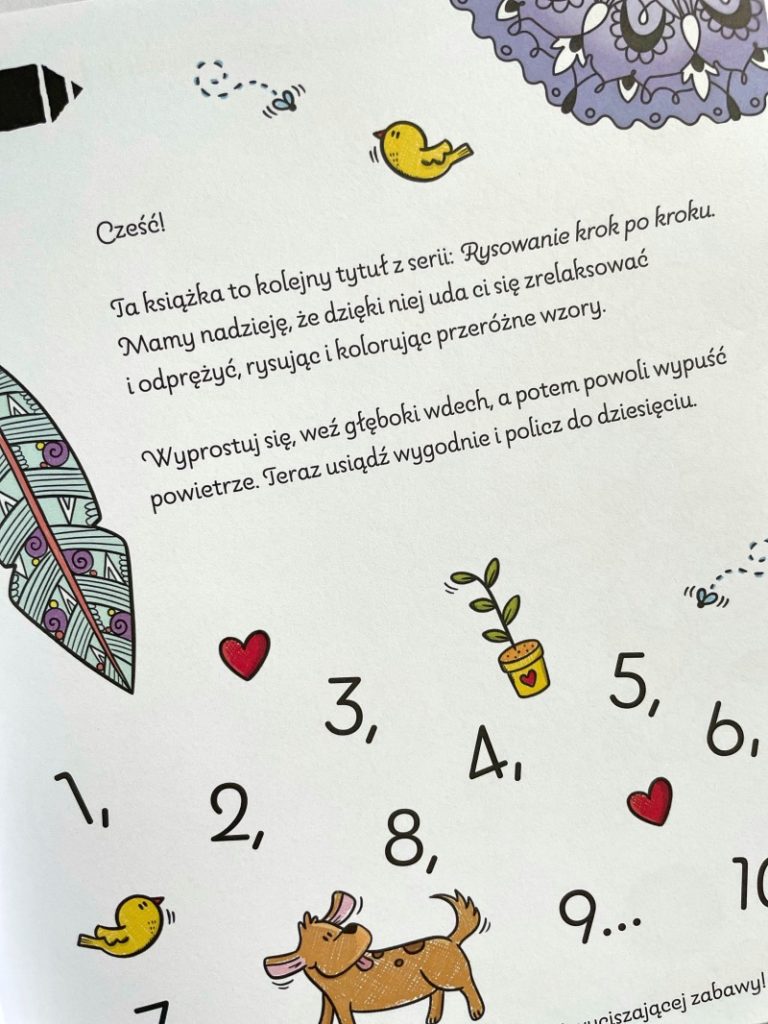 Cześć!
Ta książka to kolejny tytuł z serii: Rysowanie krok po kroku.
Mamy nadzieję, że dzięki niej uda ci się zrelaksować
i odprężyć, rysując i kolorując przeróżne wzory.
Wyprostuj się, weź głęboki wdech, a potem powoli wypuść
powietrze. Teraz usiądź wygodnie i policz do dziesięciu.
1,
2,
3,
4,
5,
6,
7
8,
9...
10
zabawy!